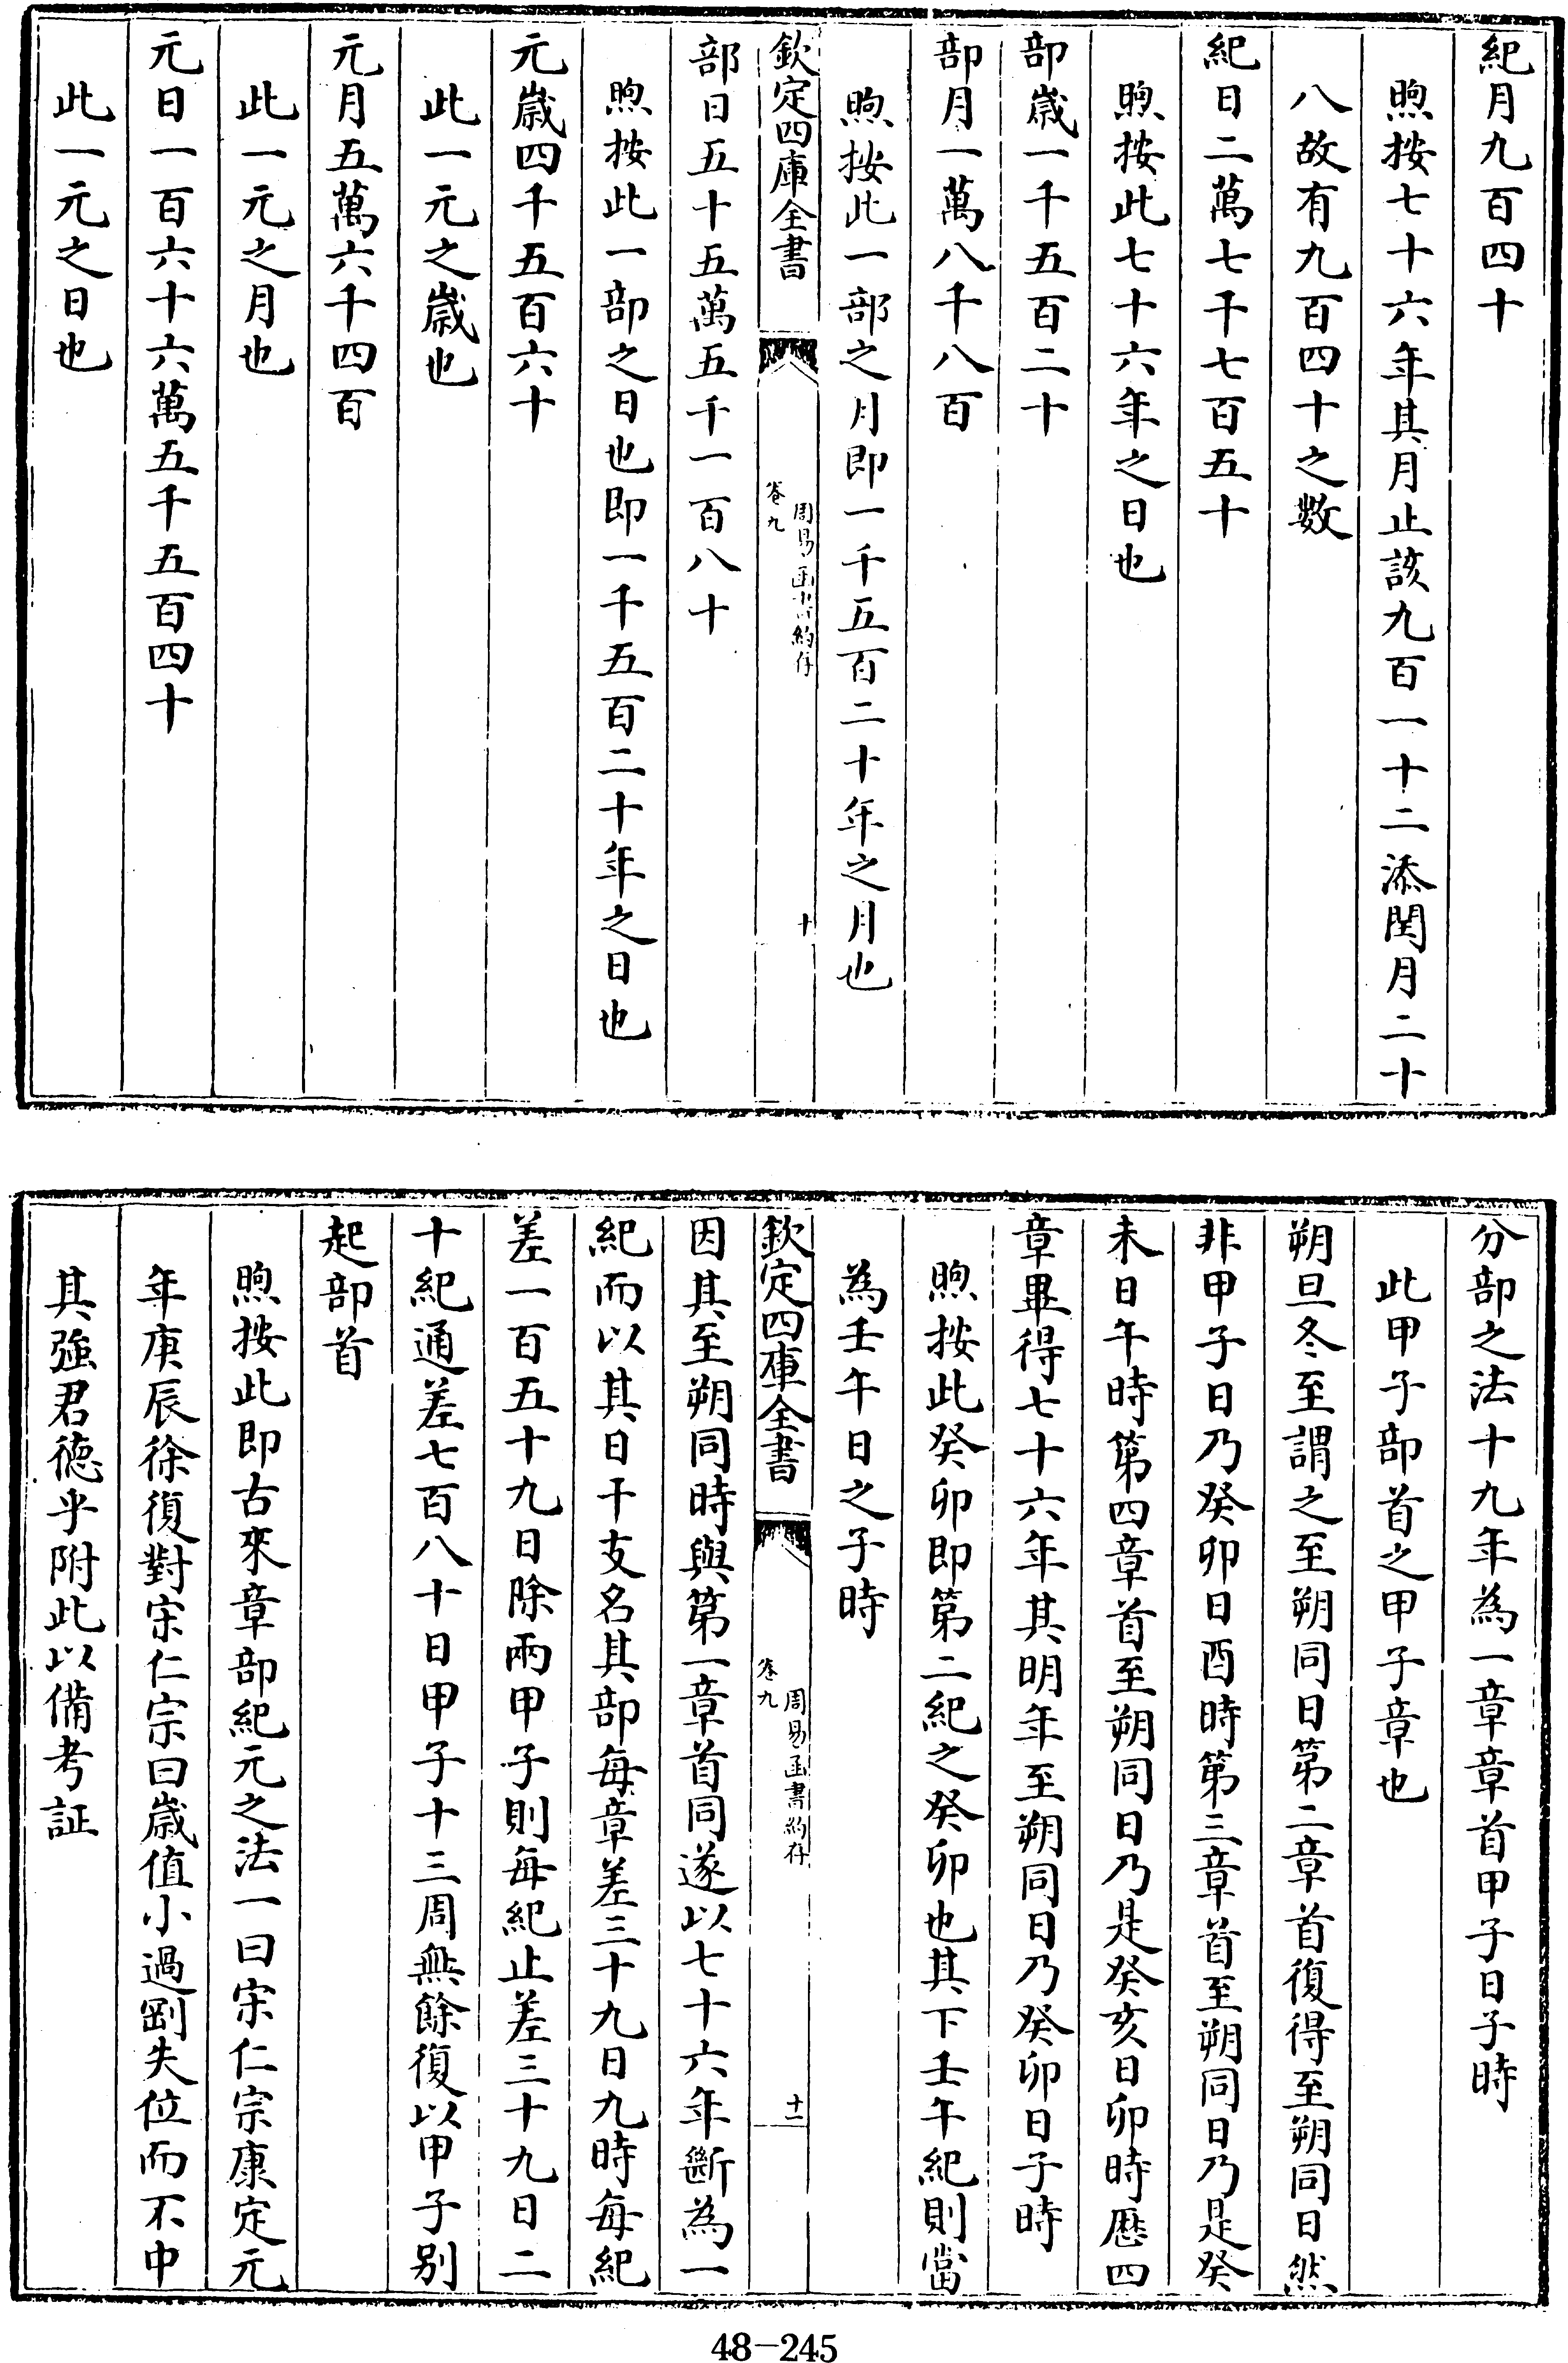 紀月九百四十
煦按七十六年其月止該九百一十二添閏月二十
八故有九百四十之數
紀日二萬七千七百五十
煦按此七十六年之日也
部歲一千五百二十
部月一萬八千八百
煦按此一部之月即一千五百二十年之月也
欽定四庫全書
周易函書約存
卷九
十
部日五十五萬五千一百八十
煦按此一部之日也即一千五百二十年之日也
元歲四千五百六十
此一元之歲也
元月五萬六千四百
此一元之月也
元日一百六十六萬五千五百四十
此一元之日也
分部之法十九年為一章章首甲子日子時
此甲子部首之甲子章也
朔旦冬至謂之至朔同日第二章首復得至朔同日然
非甲子日乃癸卯日酉時第三章首至朔同日乃是癸
未日午時第四章首至朔同日乃是癸亥日卯時歷四
章畢得七十六年其明年至朔同日乃癸卯日子時
煦按此癸卯即第二紀之癸卯也其下壬午紀則當
為壬午日之子時
欽定四庫全書
周易函書約存
卷九
十一
因其至朔同時與第一章首同遂以七十六年斷為一
紀而以其日干支名其部每章差三十九日九時每紀
差一百五十九日除兩甲子則每紀止差三十九日二
十紀通差七百八十日甲子十三周無餘復以甲子別
起部首
煦按此即古來章部紀元之法一曰宋仁宗康定元
年庚辰徐復對宋仁宗曰歲值小過剛失位而不中
其強君德乎附此以備考証
48-245